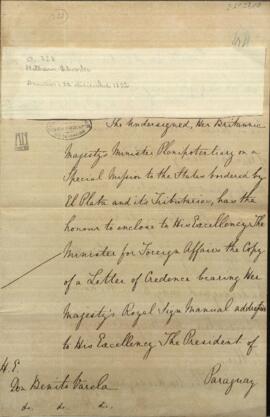 The Undersigned, Her Britannic
Majesty's Minister Plenipotentiary on a
Special Mission to the States bordered by
El Plata and its Tributaries, has the
honour to enclose to His Excellency The
Minister for Foreign Affairs the Copy
of a Letter of Credence bearing Her
Majesty's Royal Sign Manual addressed
to His Excellency The President of
Paraguay
H. E.
Don Benito Varela
&c. &c. &c.